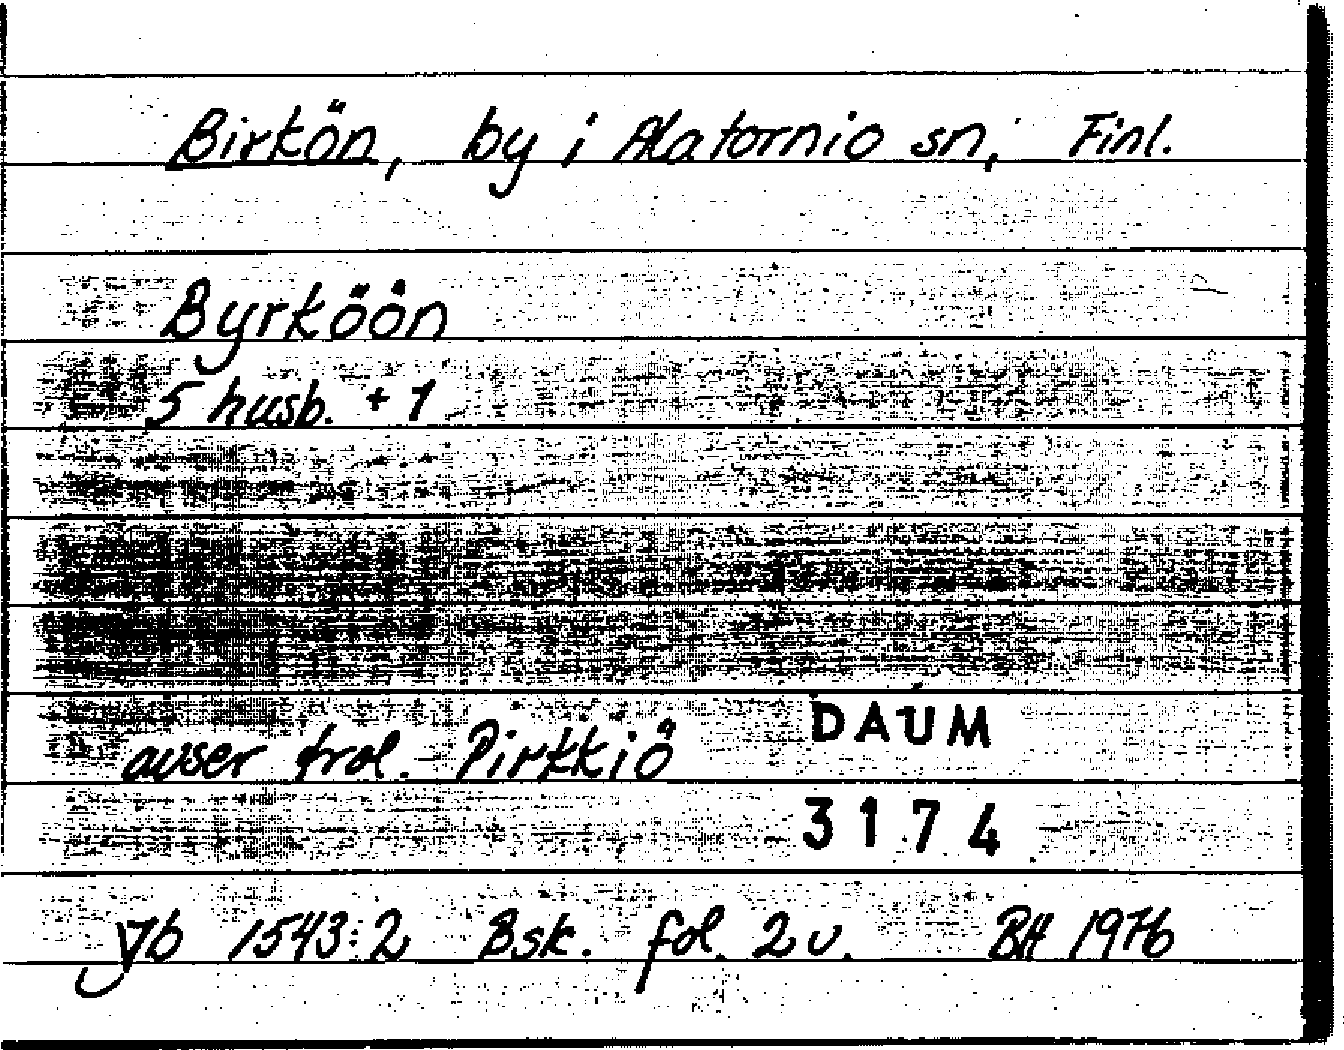 Birkön, by i Alatornio sn, Finl.
Byrköön
5 husb. + 1
avser trol. Pirkkiö
DAUM
3174
Jb 1543:2 Bsk. fol. 2v. BH 1976